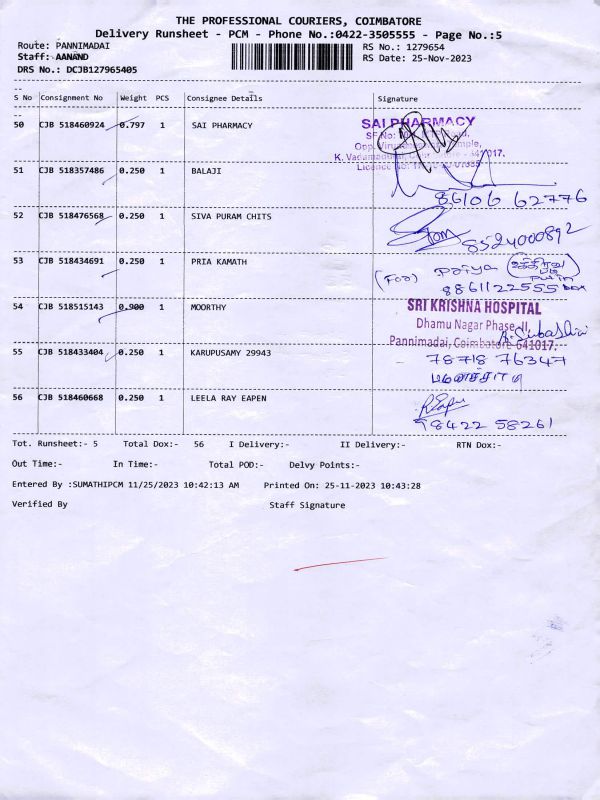 THE PROFESSIONAL COURIERS, COIMBATORE
Delivery Runsheet - PCM - Phone No.:0422-3505555 - Page No.:5
Route: PANNIMADAI
RS No.: 1279654
Staff: AANAND
RS Date: 25-Nov-2023
DRS No.: DCJB127965405
S No Consignment No Weight PCS Consignee Details Signature
50 CJB 518460924 0.797 1 SAI PHARMACY
SAI PHARMACY
K. Vadamadurai,
51 CJB 518357486 0.250 1 BALAJI
86106 62776
52 CJB 518476568 0.250 1 SIVA PURAM CHITS
8524000892
53 CJB 518434691 0.250 1 PRIA KAMATH
(For) Priya
8861122555
54 CJB 518515143 0.900 1 MOORTHY
SRI KRISHNA HOSPITAL
Dhamu Nagar Phase II,
Pannimadai, Coimbatore 641017.
55 CJB 518433404 0.250 1 KARUPUSAMY 29943
78718 76347
56 CJB 518460668 0.250 1 LEELA RAY EAPEN
98422 58261
Tot. Runsheet:- 5 Total Dox:- 56 I Delivery:- II Delivery:- RTN Dox:-
Out Time:- In Time:- Total POD:- Delvy Points:-
Entered By :SUMATHIPCM 11/25/2023 10:42:13 AM Printed On: 25-11-2023 10:43:28
Verified By Staff Signature